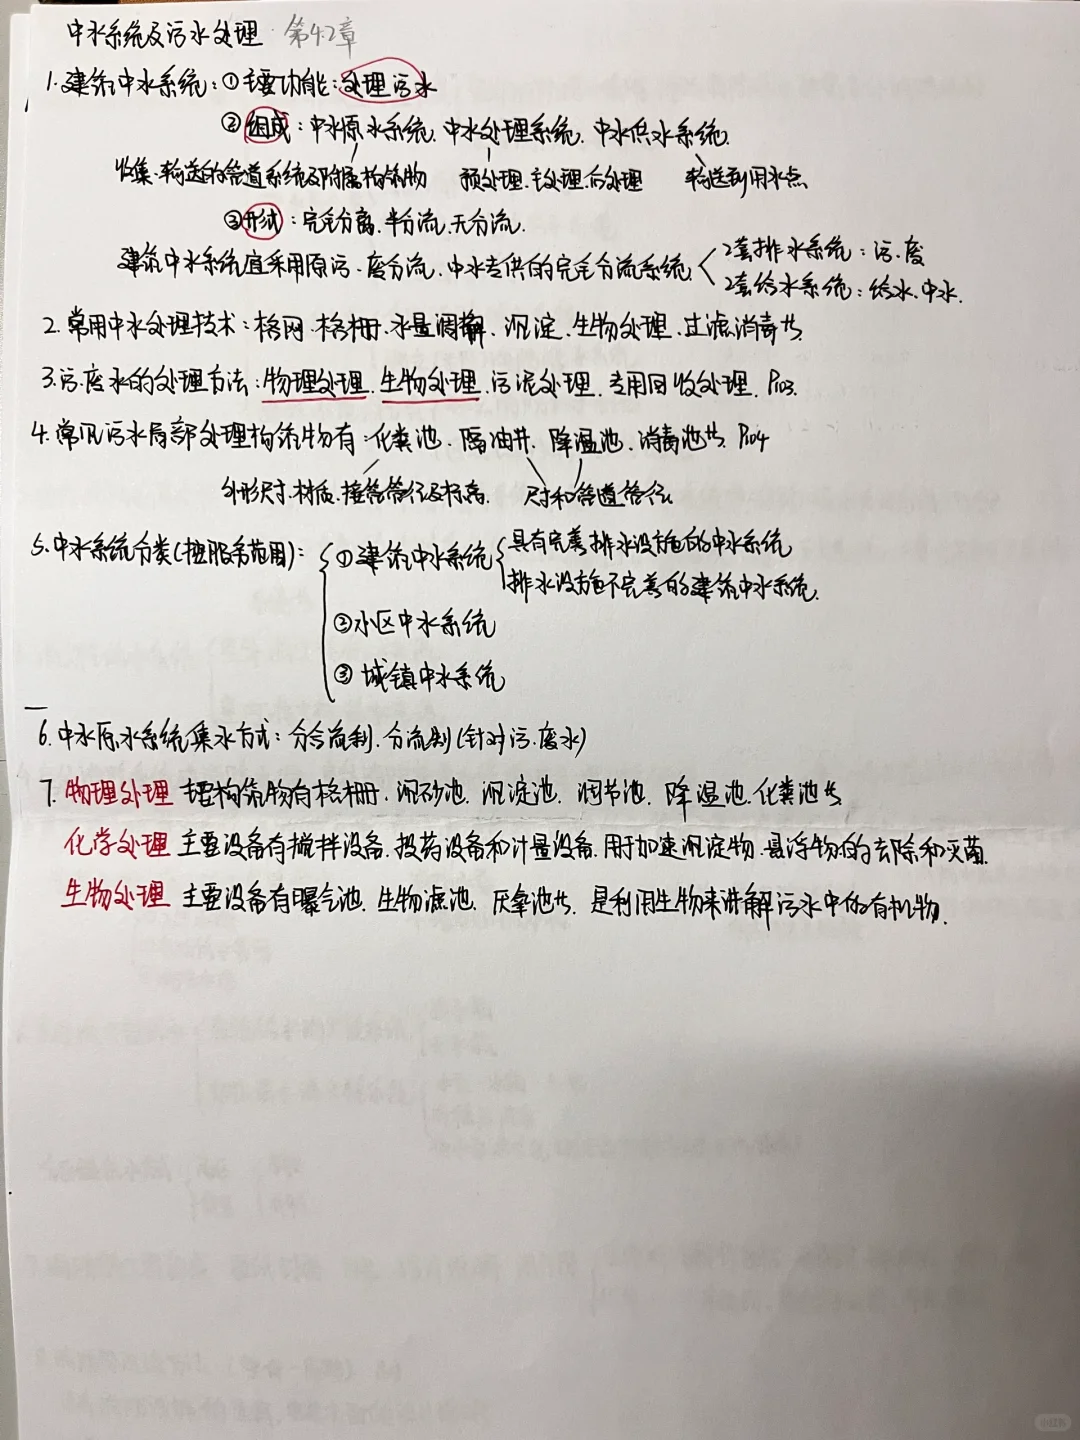 中水系统及污水处理 第4.2章
1.建筑中水系统:①主要功能:处理污水
②组成:中水原水系统.中水处理系统.中水供水系统.
收集.输送的管道系统及附属构筑物 预处理.主处理.后处理 输送到用水点
③形式:完全分离.半分流.无分流.
建筑中水系统宜采用原污.废分流.中水专供的完全分流系统
2套排水系统:污.废
2套给水系统:给水.中水.
2.常用中水处理技术:格网.格栅.水量调解.沉淀.生物处理.过滤消毒等
3.污.废水的处理方法:物理处理.生物处理.污泥处理.专用回收处理.P103.
4.常见污水局部处理构筑物有:化粪池.隔油井.降温池.消毒池等.P104
外形尺寸.材质.接管管径及标高. 尺寸和管道管径
5.中水系统分类(按服务范围):
①建筑中水系统
具有完善排水设施的中水系统
排水设施不完善的建筑中水系统.
②小区中水系统
③城镇中水系统
6.中水原水系统集水方式:合流制.分流制(针对污.废水)
7.物理处理 主要构筑物有格栅.沉砂池.沉淀池.调节池.降温池.化粪池等
化学处理 主要设备有搅拌设备.投药设备和计量设备.用于加速沉淀物.悬浮物的去除和灭菌.
生物处理 主要设备有曝气池.生物滤池.厌氧池等.是利用生物来讲解污水中的有机物.